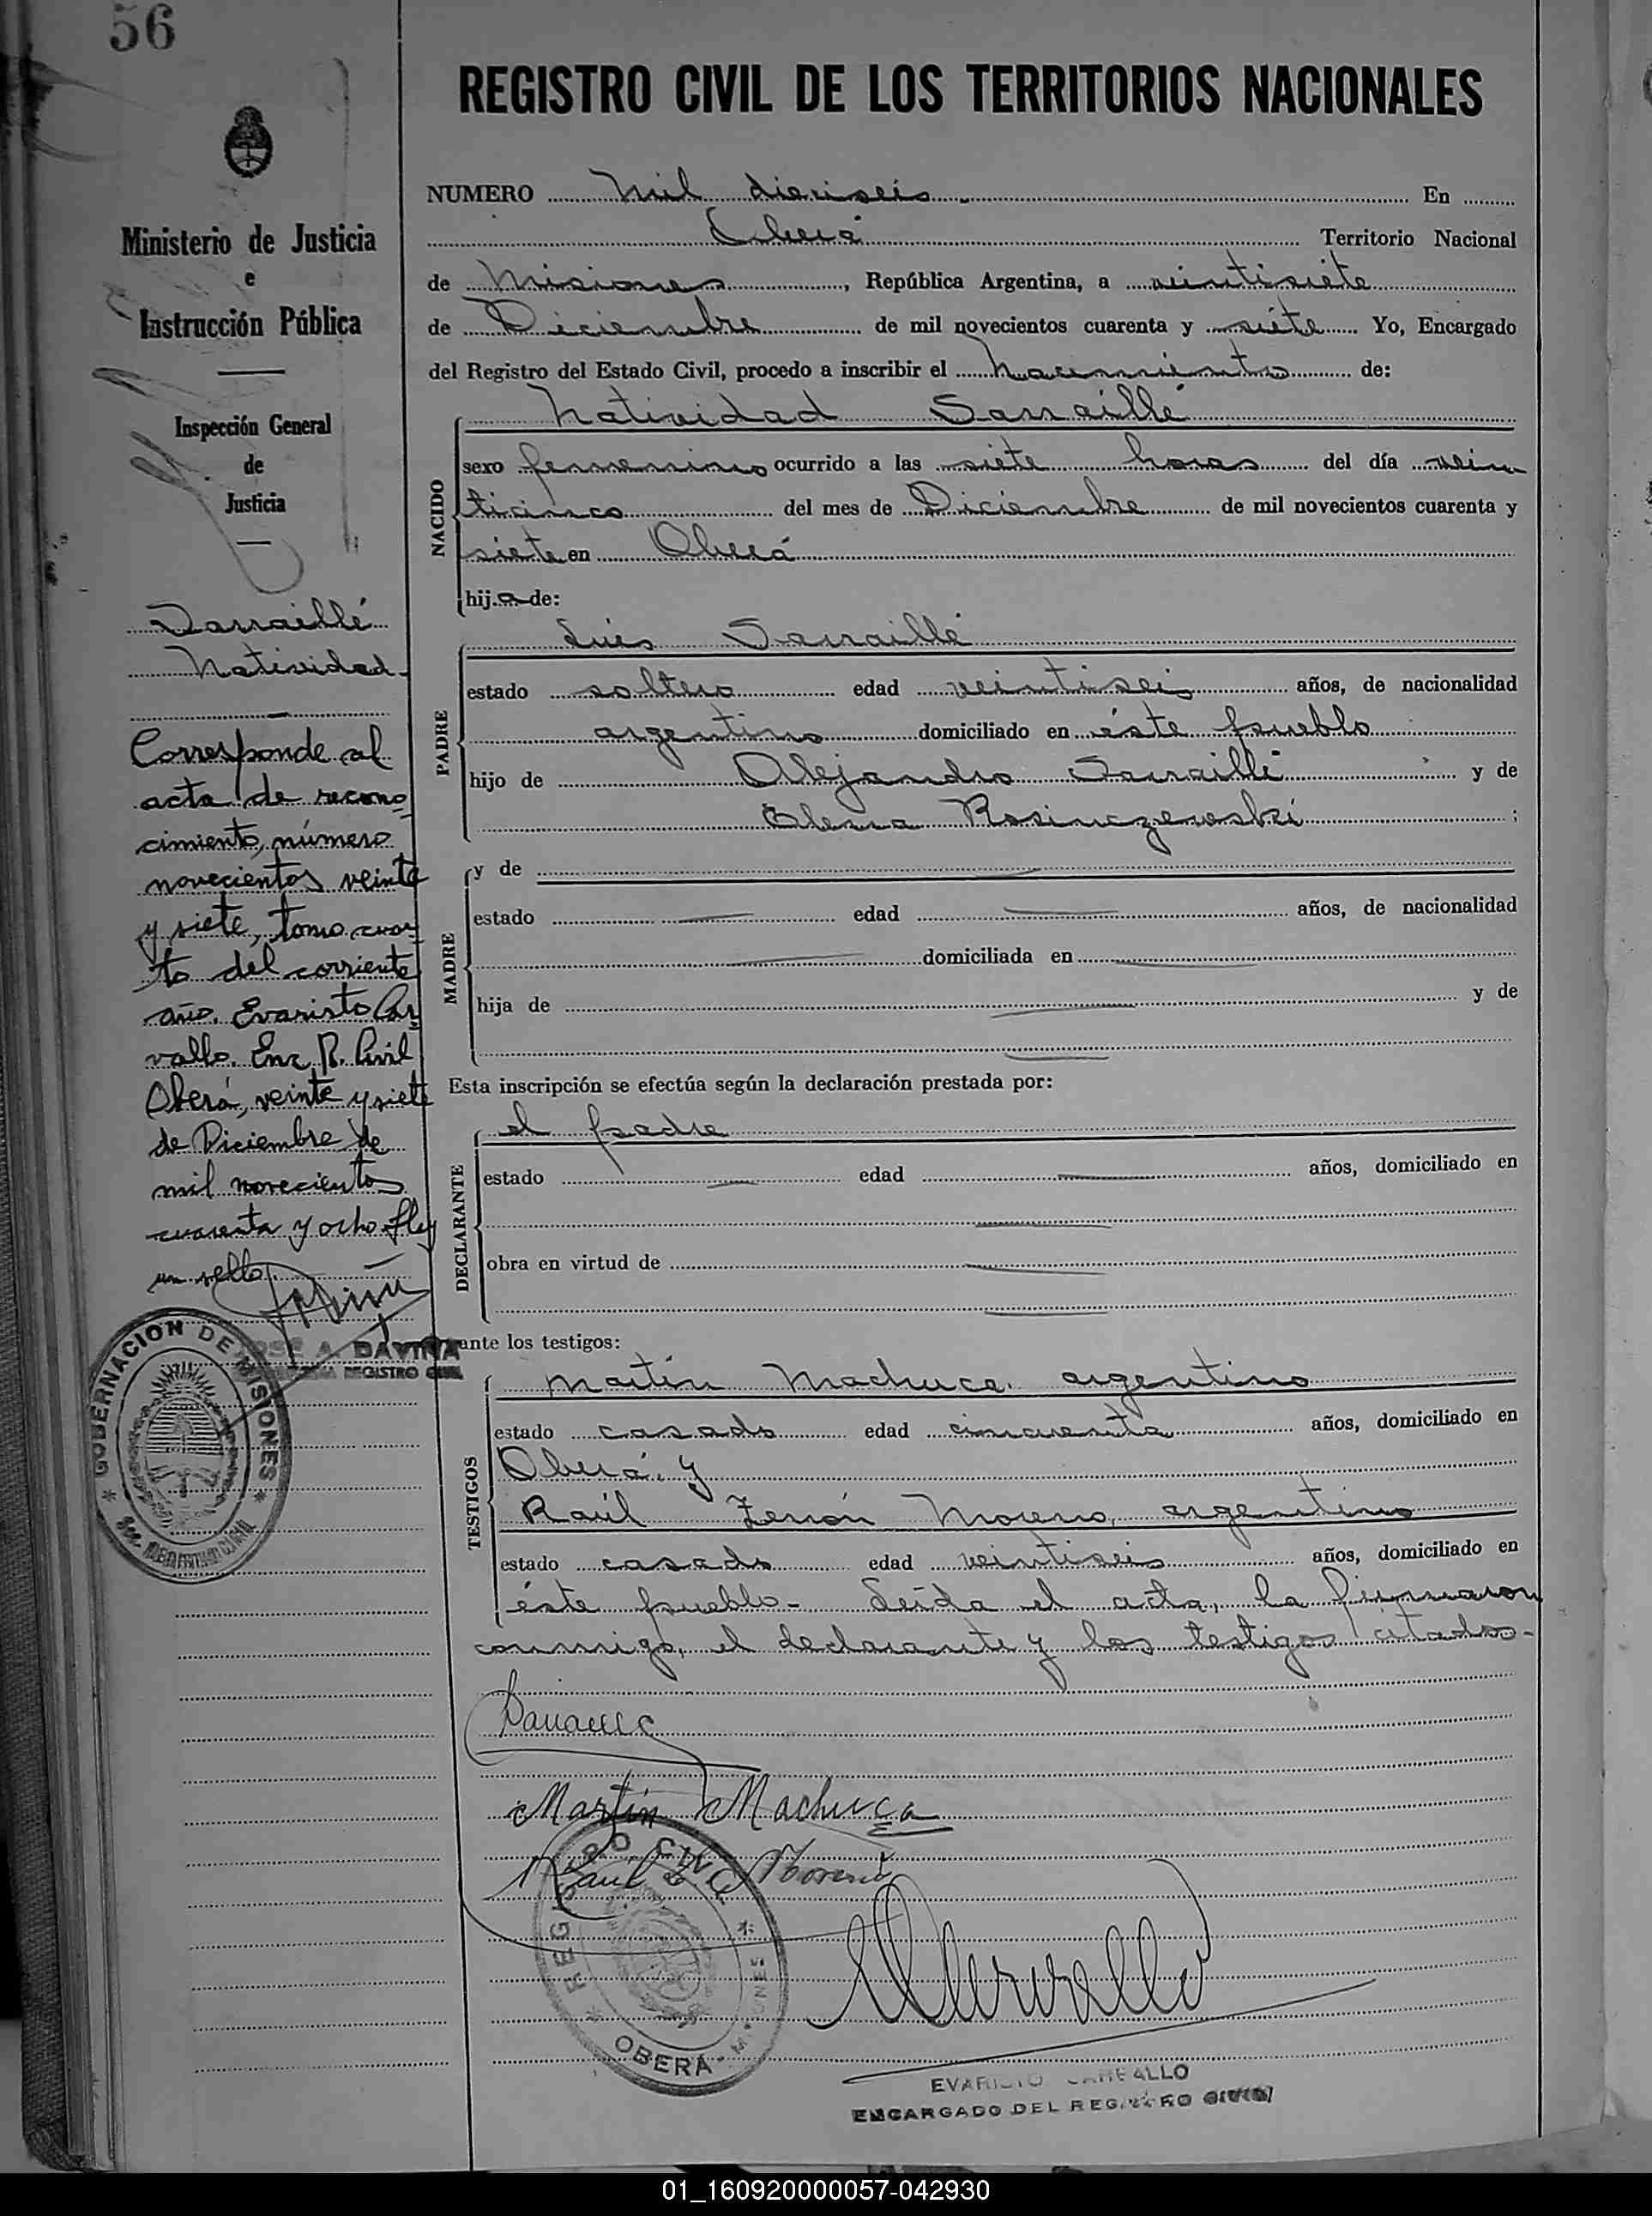 56
REGISTRO CIVIL DE LOS TERRITORIOS NACIONALES
Ministerio de Justicia
e
Instrucción Pública
Inspección General
de
Justicia
Sarraillé
Natividad
Corresponde al
acta de recono
cimiento, número
novecientos veinte
y siete, tomo cuar
to del corriente
año. Evaristo Car
vallo. Enc. R. Civil
Oberá, veinte y siete
de Diciembre de
mil novecientos
cuarenta y ocho. Hay
un sello.
JOSE A. DAVIÑA
REGISTRO CIVIL
GOBERNACION DE MISIONES
NUMERO mil dieciseis En
Oberá Territorio Nacional
de Misiones, República Argentina, a veintisiete
de Diciembre de mil novecientos cuarenta y siete Yo, Encargado
del Registro del Estado Civil, procedo a inscribir el nacimiento de:
NACIDO
Natividad Sarraillé
sexo femenino ocurrido a las siete horas del día vein
ticinco del mes de Diciembre de mil novecientos cuarenta y
siete en Oberá
hija de:
PADRE
Luis Sarraillé
estado soltero edad veintiseis años, de nacionalidad
argentino domiciliado en éste pueblo
hijo de Alejandro Sarraillé y de
Elena Rosinczewski ;
MADRE
y de
estado edad años, de nacionalidad
domiciliada en
hija de y de
Esta inscripción se efectúa según la declaración prestada por:
DECLARANTE
el padre
estado edad años, domiciliado en
obra en virtud de
ante los testigos:
TESTIGOS
Martín Machuca, argentino
estado casado edad cincuenta años, domiciliado en
Oberá, y
Raúl Zenón Moreno, argentino
estado casado edad veintiseis años, domiciliado en
éste pueblo- Leída el acta, la firmaron
conmigo, el declarante y los testigos citados-
Martín Machuca
Raúl Z. Moreno
REGISTRO CIVIL
OBERÁ
EVARISTO CARVALLO
ENCARGADO DEL REGISTRO CIVIL
01_160920000057-042930